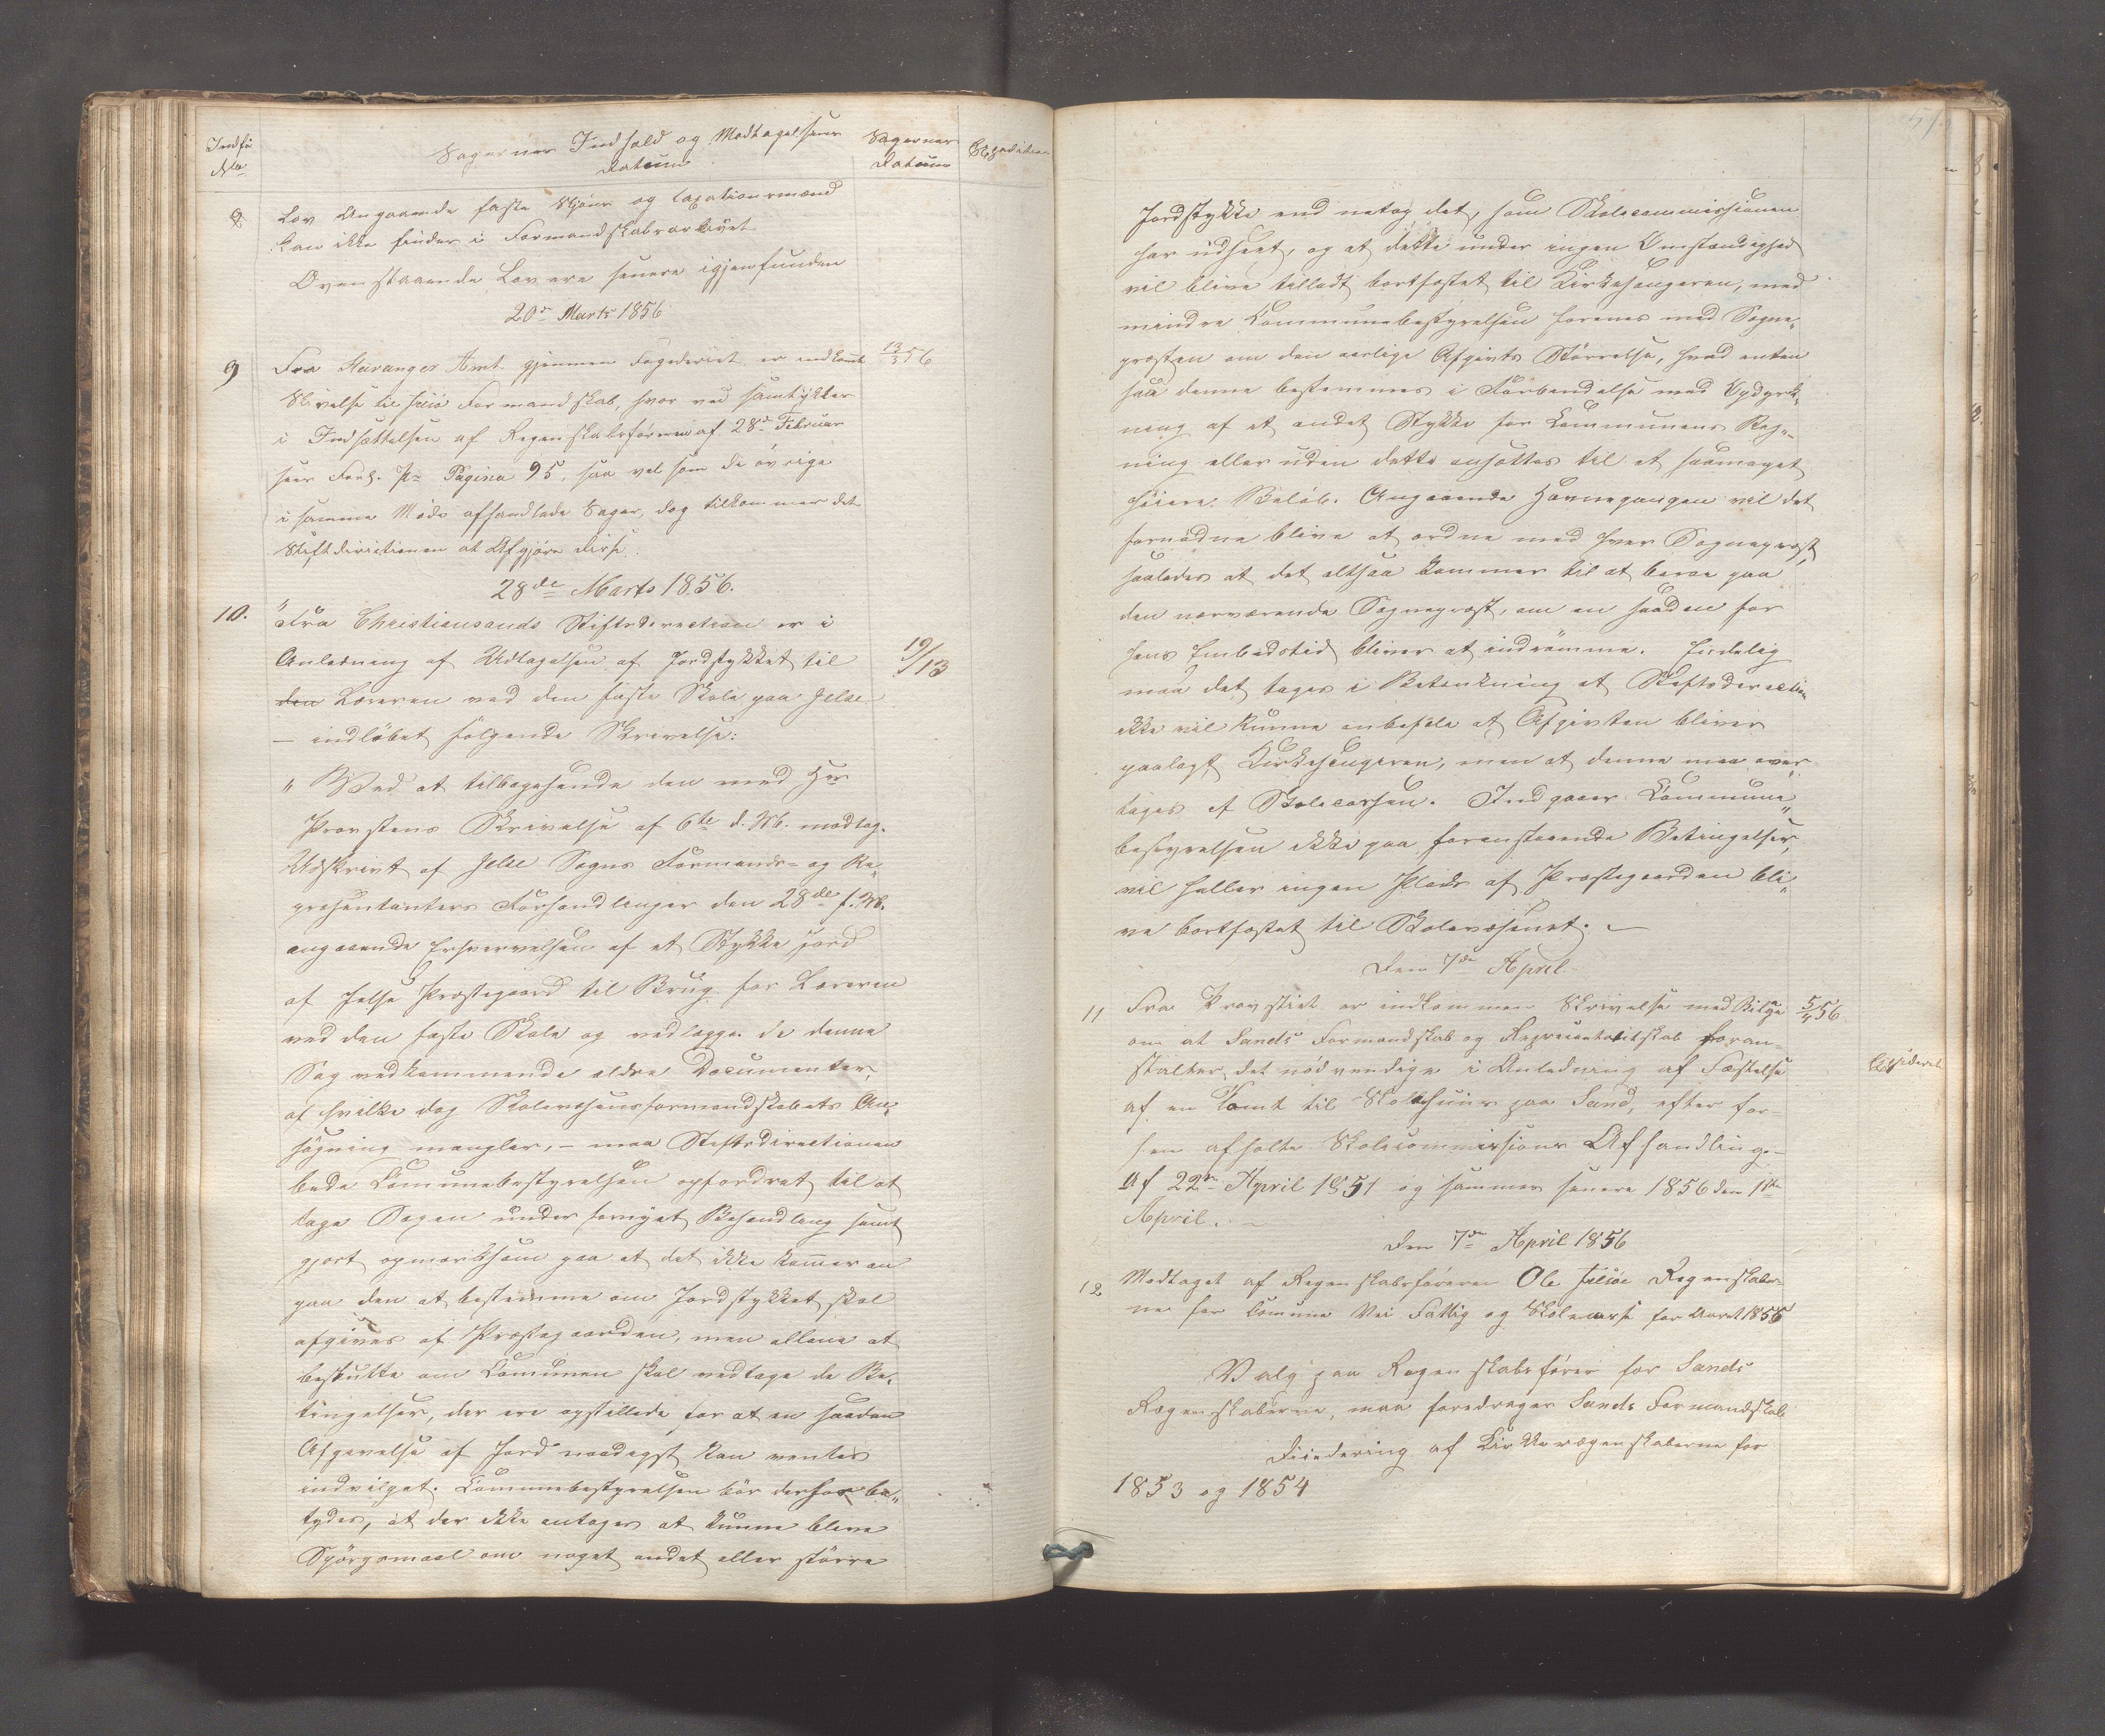 Indfö
dte
Sagernes Indhold og Modtagelsens
Datum
Sagernes
Datum
Expedition
Lov Angaaende faste Skjøns og Taxationsmænd
kan ikke findes i Formandskabsarkivet
Ovenstaaende Lov ere senere igjenfunden
20de Marts 1856
9 Fra Stavanger Amt gjennem Fogderiet er indkomt 13/3 56
Skrivelse til Jelsö Formandskab hvor ved samtykkes
i Indsættelsen af Regenskabsföreren af 28de Februar
seer Forh. Pr Pagina 95, saa vel som de övrige
i samme Möde afhandlede Sager, dog tilkommer det
Stiftdirectionen at Afgjöre disse.
28de Marts 1856.
10. Fra Christiansands Stiftsdirection er i
Anledning af Udtagelsen af Jordstykket til 19/3
den Læreren ved den faste Skole paa Jelse
— indlöbet fölgende Skrivelse:
" Ved at tilbagesende den med Hr
Provstens Skrivelse af 6te d. M. modtag.
Udskrivt af Jelse Sogns Formands- og Re„
presentanters Forhandlinger den 28de f. M.
angaaende Erhvervelsen af et Stykke Jord
af Jelse Præstegaard til Brug for Læreren
ved den faste Skole og vedlagge de denne
Sag vedkommende ældre Documenter,
af hvilke dog Skolevæsensformandskabets An„
søgning mangler, – maa Stiftsdirectionen
bede Communebestyrelsen opfordret til at
tage Sagen under fornyet Behandling samt
gjort opmærksom paa at det ikke kommer an
paa den at bestemme om Jordstykket skal
afgives af Præstegaarden, men allene at
beslutte om Communen skal vedtage de Be„
tingelser, der ere opstillede for at en saadan
Afgivelse af Jord naadigst kan ventes
indvilget. Communebestyrelsen bör derfor be„
tydes, at der ikke antages at kunne blive
Spörgsmaal om noget andet eller större
Jordstykke end netop det, som Skolecommissionen
har udseet, og at dette under ingen Omstændighed
vil blive tilladt bortfæstet til Kirkesangeren, med
mindre Communebestyrelsen forenes med Sogne„
præsten om den aarlige Afgivts Störrelse, hvad enten
saa denne bestemmes i Forbindelse med Opdyrk„
ning af et andet Stykke for Communens Reg„
ning eller uden dette ansættes til et saameget
höiere Belöb. Angaaende Havnegangen vil det
fornödne blive at ordne med hver Sognepræst,
saaledes at det altsaa kommer til at beroe paa
den nærværende Sognepræst, om en saadan for
hans Embedstid bliver at indrömme. Endelig
maa det tages i Betænkning at Stiftsdirection
ikke vil kunne anbefale at Afgivten bliver
paalagt Kirkesangeren, men at denne maa over„
tages af Skolecassen. Indgaaer Commune„
bestyrelsen ikke paa foranstaaende Betingelser,
vil heller ingen Plads af Præstegaarden bli„
ve bortfæstet til Skolevæsenet. —
Den 7de April
11 Fra Provstiet er indkommen Skrivelse med Bilage 5/4 56
om at Sands Formandskab og Representantskab foran-
stalter det nödvendige i Anledning af Fæstelse Expideret
af en Tomt til Skolehuus paa Sand, efter for-
hen afholte Skolecommissions Afhandling-
Af 22de April 1851 og sammes senere 1856 den 1ste
April. —
Den 7de April 1856
12 Modtaget af Regenskabsföreren Ole Jelsöe Regenskaber-
ne for Comune Vei Fattig og Skolecasse for Aaret 1855
Valg paa Regenskabsförer for Sands
Regenskaberne, maa foredrages Sands Formandskab
Diedering af Kirkeregenskaberne for
1853 og 1854